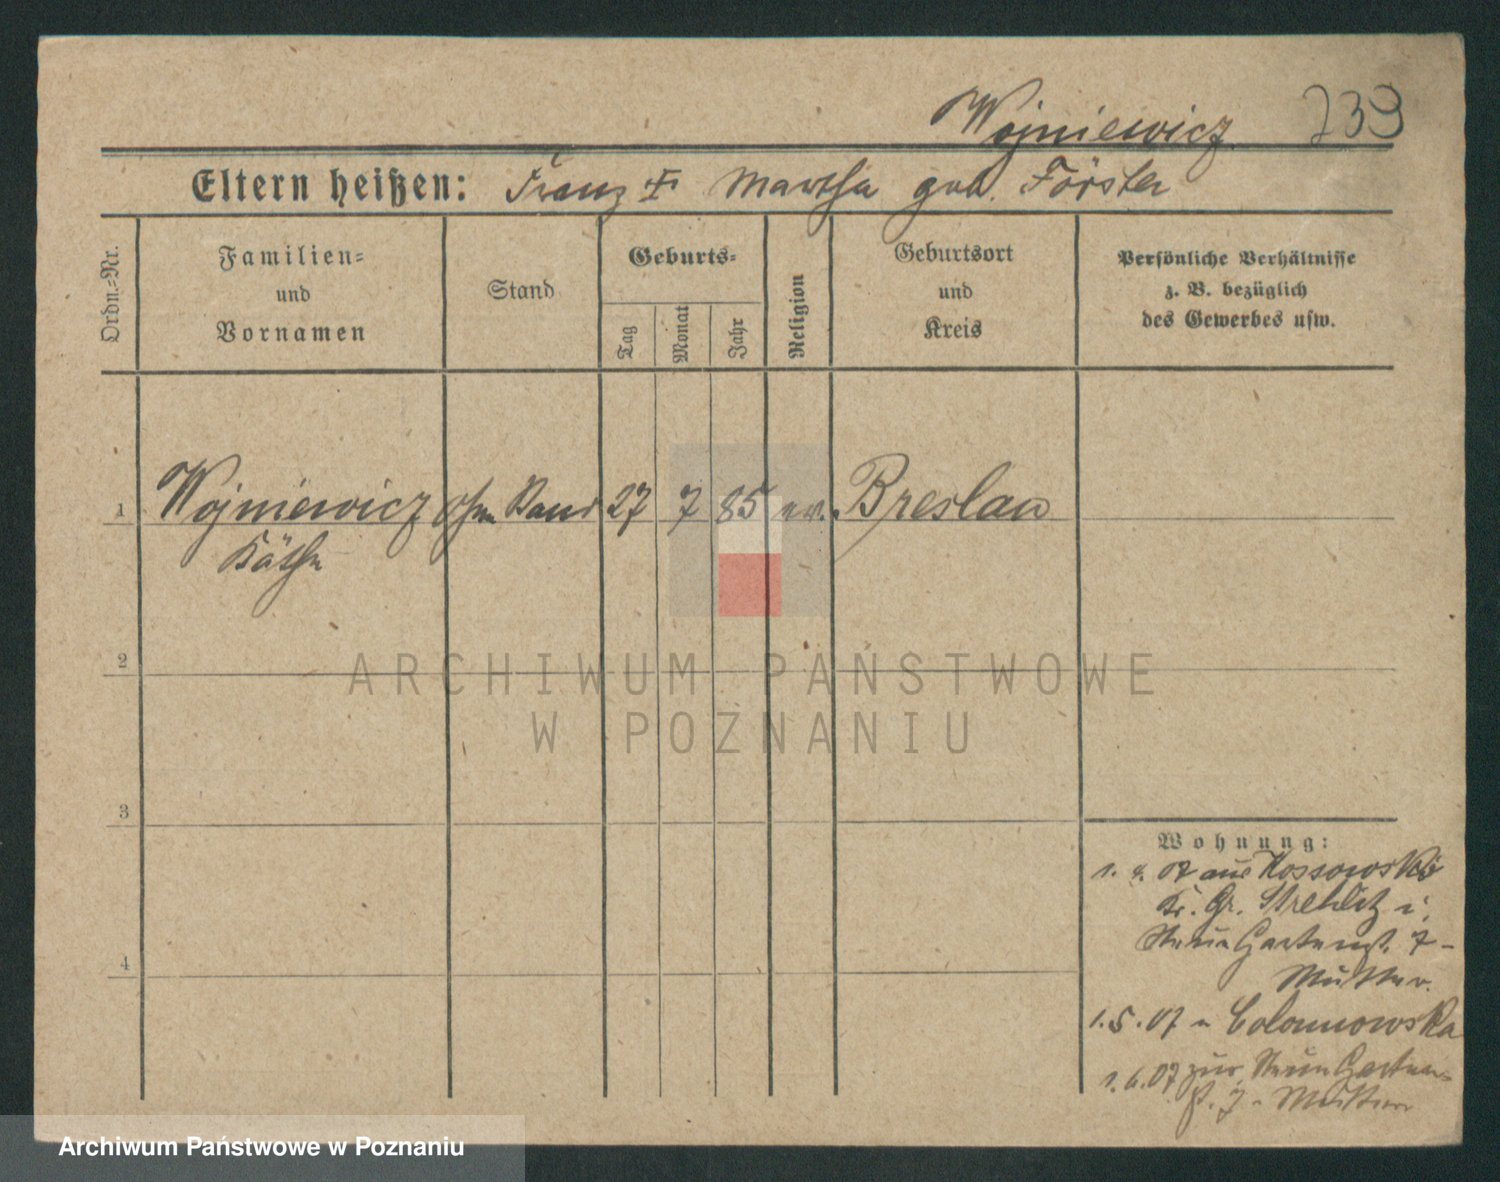 Wojniewicz 739
Eltern heißen: Franz Martha geb. Förster
Ordn.-Nr.
Familien-
und
Vornamen
Stand
Geburts-
Tag
Monat
Jahr
Religion
Geburtsort
und
Kreis
Persönliche Verhältnisse
z. B. bezüglich
des Gewerbes usw.
1 Wojniewicz ohne Stand 27 7 85 ev. Breslau
Käthe
2
ARCHIWUM PAŃSTWOWE
W POZNANIU
3
4
Wohnung:
1. 4. 07 aus Kossowska
Kr. Gr. Strehlitz i.
Neue Gartenst. 7-
Mutter.
1.5.07 n Colonnowska
1.6.07 zur. Neue Garten-
st. 7 - Mutter
Archiwum Państwowe w Poznaniu